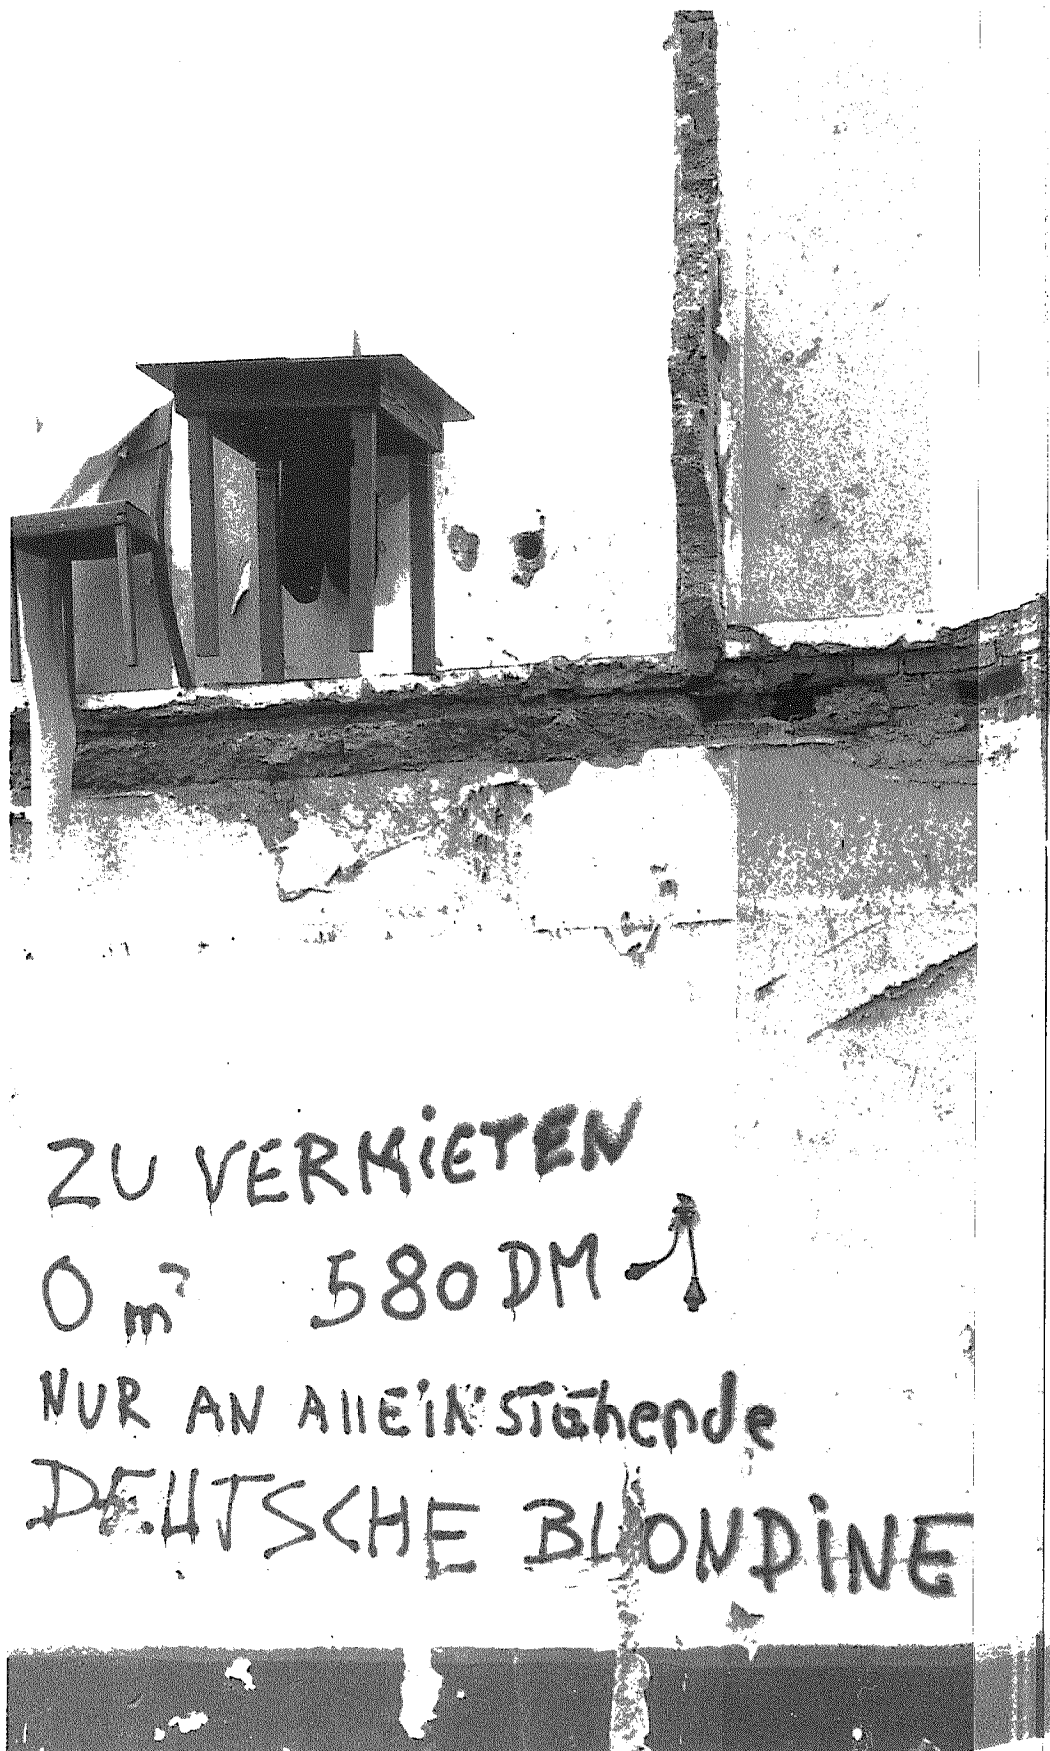 ZU VERMiETEN
0 m² 580 DM
NUR AN AllEiNSTEhende
DEUTSCHE BLONDiNE